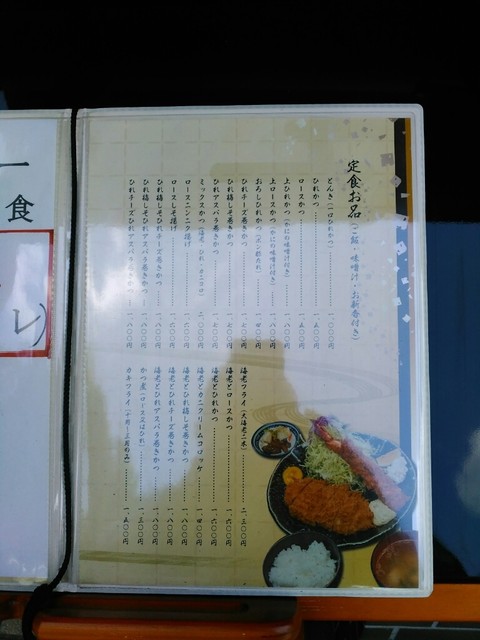 定食お品（ご飯・味噌汁・お新香付き）
とんき（一口ひれかつ）………一、〇〇〇円
ひれかつ………一、五〇〇円
ロースかつ………一、四〇〇円
上ひれかつ（かにわ味噌汁付き）………一、八〇〇円
上ロースかつ（かにわ味噌汁付き）………一、八〇〇円
おろしひれかつ（ポン酢たれ）………一、四〇〇円
ひれチーズ巻きかつ………一、七〇〇円
ひれ梅しそ巻きかつ………一、七〇〇円
ひれアスパラ巻きかつ………一、七〇〇円
ミックスかつ（海老・ひれ・カニコロ）………二、〇〇〇円
ロースニンニク揚げ………一、六〇〇円
ロースしそ揚げ………一、六〇〇円
ひれ梅しそひれチーズ巻きかつ………一、八〇〇円
ひれ梅しそひれアスパラ巻きかつ………一、八〇〇円
ひれチーズひれアスパラ巻きかつ………一、八〇〇円
海老フライ（大海老二本）………二、三〇〇円
海老とロースかつ………一、六〇〇円
海老とひれかつ………一、六〇〇円
海老とカニクリームコロッケ………一、四〇〇円
海老とひれ梅しそ巻きかつ………一、八〇〇円
海老とひれチーズ巻きかつ………一、八〇〇円
海老とひれアスパラ巻きかつ………一、八〇〇円
かつ煮（ロース又はひれ）………一、三〇〇円
カキフライ（十月〜三月のみ）………一、五〇〇円
食
レ）